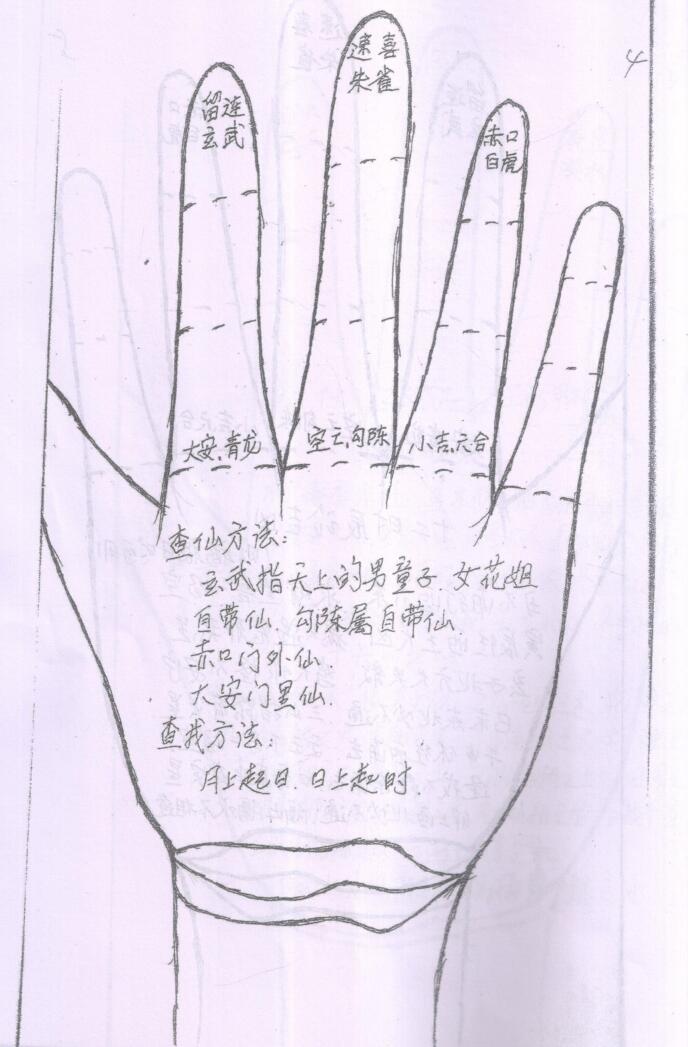 4
速喜
朱雀
留连
玄武
赤口
白虎
大安、青龙
空亡、勾陈
小吉、六合
查仙方法:
玄武指天上的男童子、女花姐
自带仙、勾陈属自带仙
赤口门外仙、
大安门里仙、
查找方法:
月上起日、日上起时